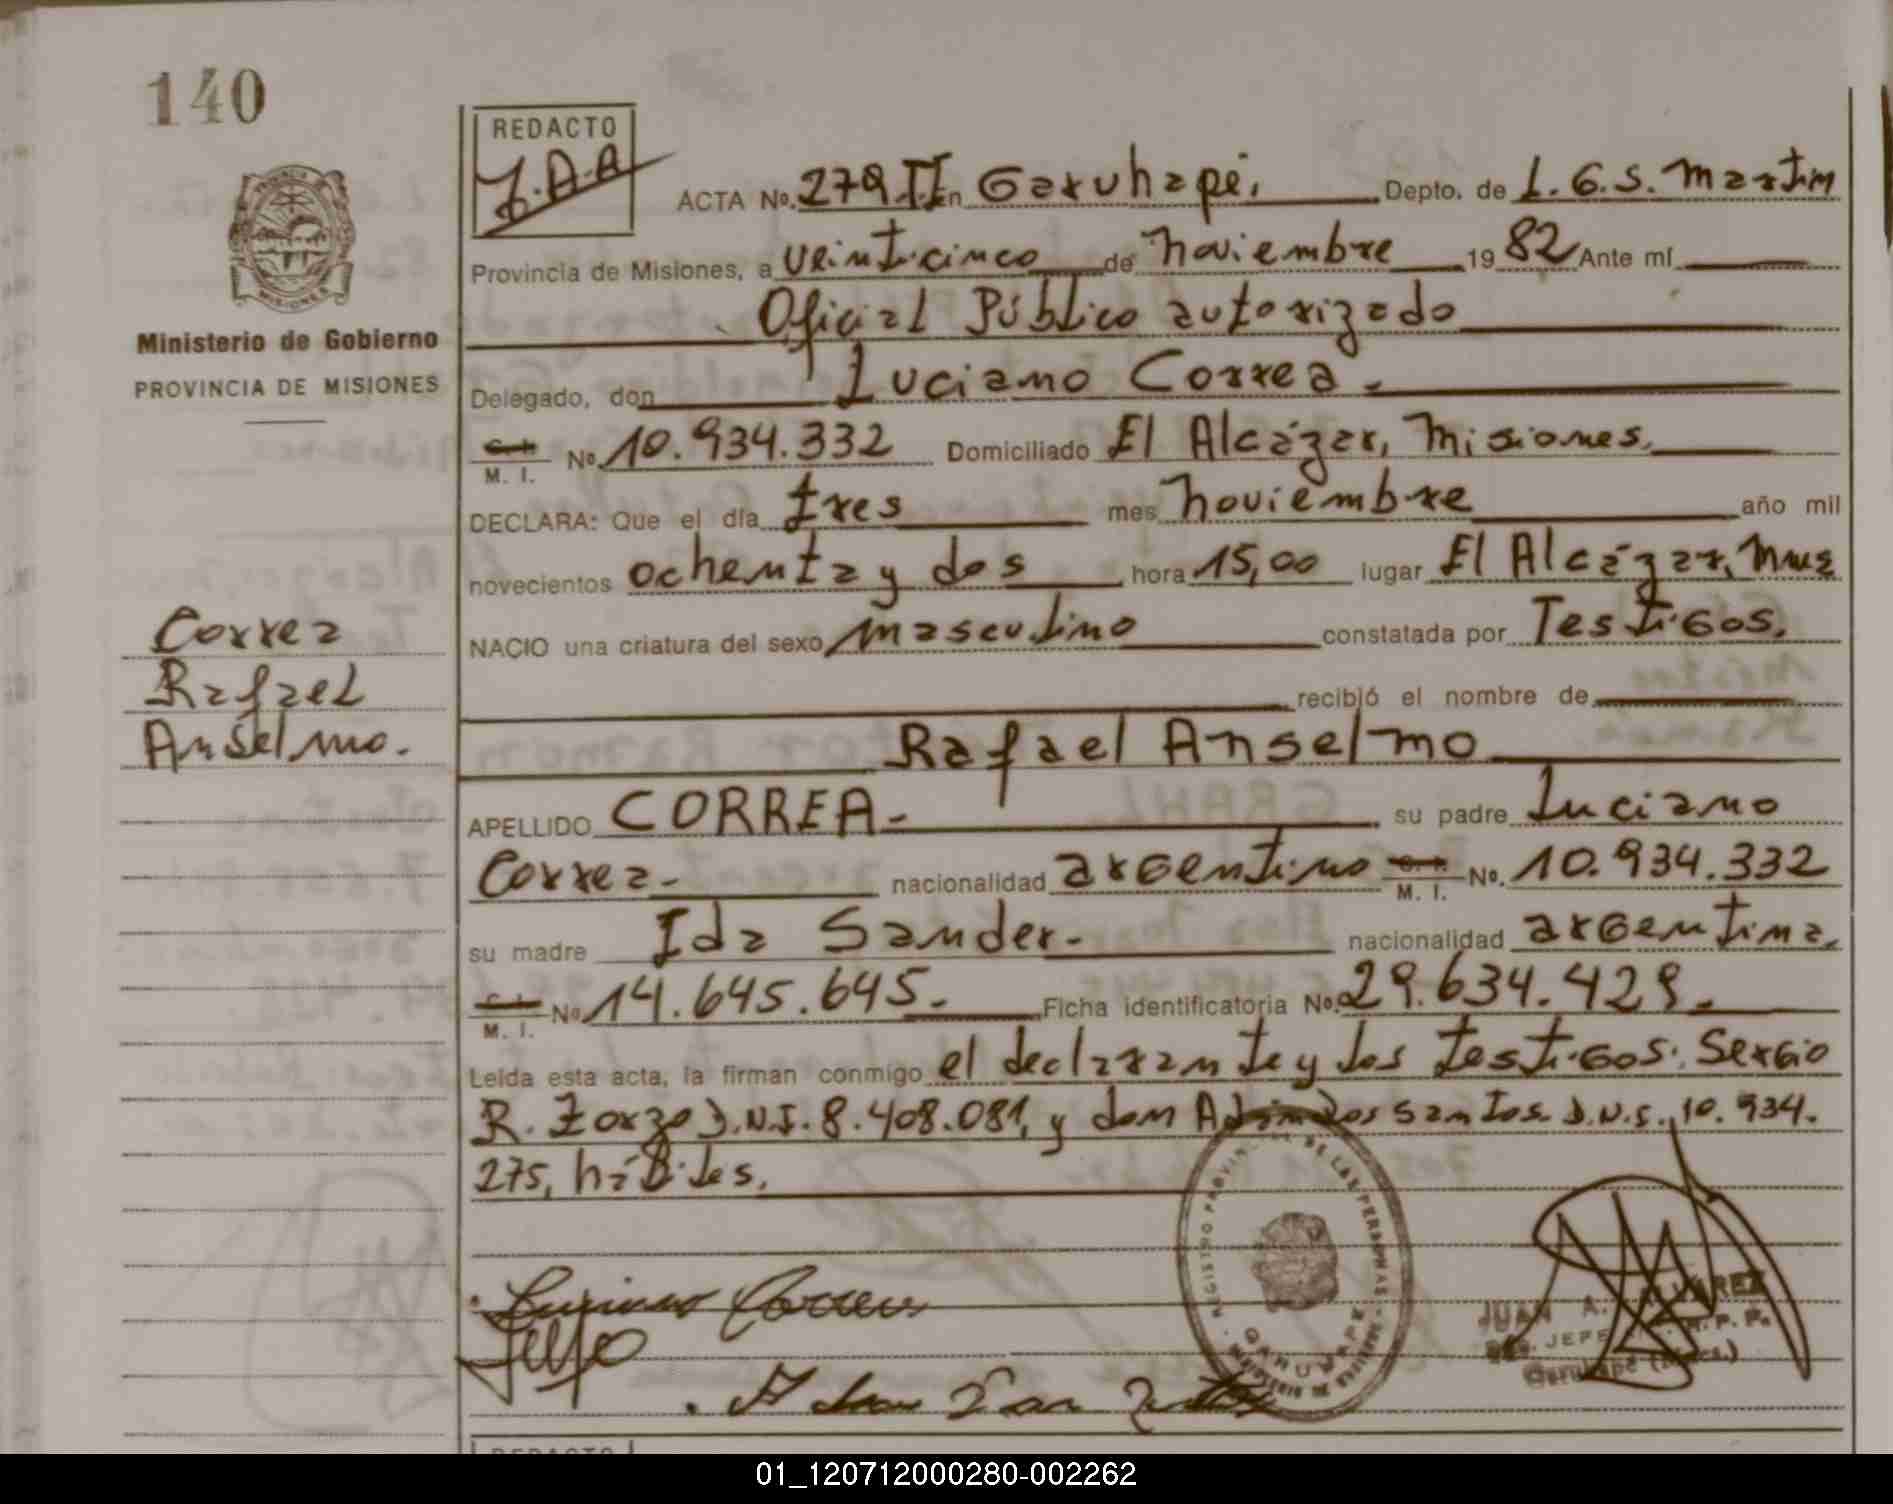 140
REDACTO
J.A.A
ACTA No. 279 II En Garuhapé, Depto. de L.G.S. Martim
Provincia de Misiones, a veinticinco de noviembre 1982 Ante mí
Oficial Público autorizado
Ministerio de Gobierno
PROVINCIA DE MISIONES
Delegado, don Luciano Correa.
C. I. M. I. No. 10.934.332 Domiciliado El Alcázar, Misiones.
DECLARA: Que el día tres mes noviembre año mil
novecientos ochenta y dos hora 15,00 lugar El Alcázar, Mnes
NACIO una criatura del sexo masculino constatada por Testigos.
recibió el nombre de
Correa
Rafael
Anselmo.
Rafael Anselmo
APELLIDO CORREA- su padre Luciano
Correa- nacionalidad argentino C. I. M. I. No. 10.934.332
su madre Ida Sander- nacionalidad argentina.
C. I. M. I. No. 14.645.645.- Ficha identificatoria No. 29.634.429.-
Leída esta acta, la firman conmigo el declarante y los testigos: Sergio
R. Zorzo D.N.I. 8.408.081, y don Adim dos Santos D.N.I. 10.934.
275, hábiles.
REGISTRO PROVIN DE LAS PERSONAS
GARUHAPE
MINISTERIO DE GOBIERNO
Luciano Correa
JUAN A. ALVAREZ
JEFE R. P. P.
Garuhapé (Mnes.)
REDACTO
01_120712000280-002262